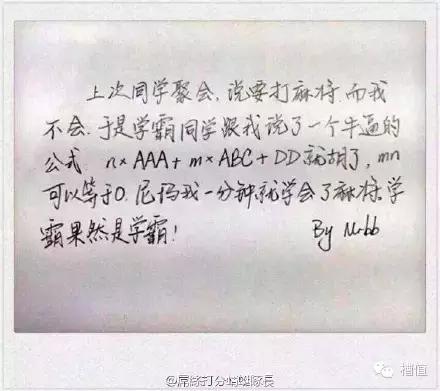 上次同学聚会，说要打麻将，而我
不会，于是学霸同学跟我说了一个牛逼的
公式 n×AAA+m×ABC+DD就胡了，mn
可以等于0。尼玛我一分钟就学会了麻将，学
霸果然是学霸！ By Mrbb
@屌丝打分蝴蝶隊長
槽值